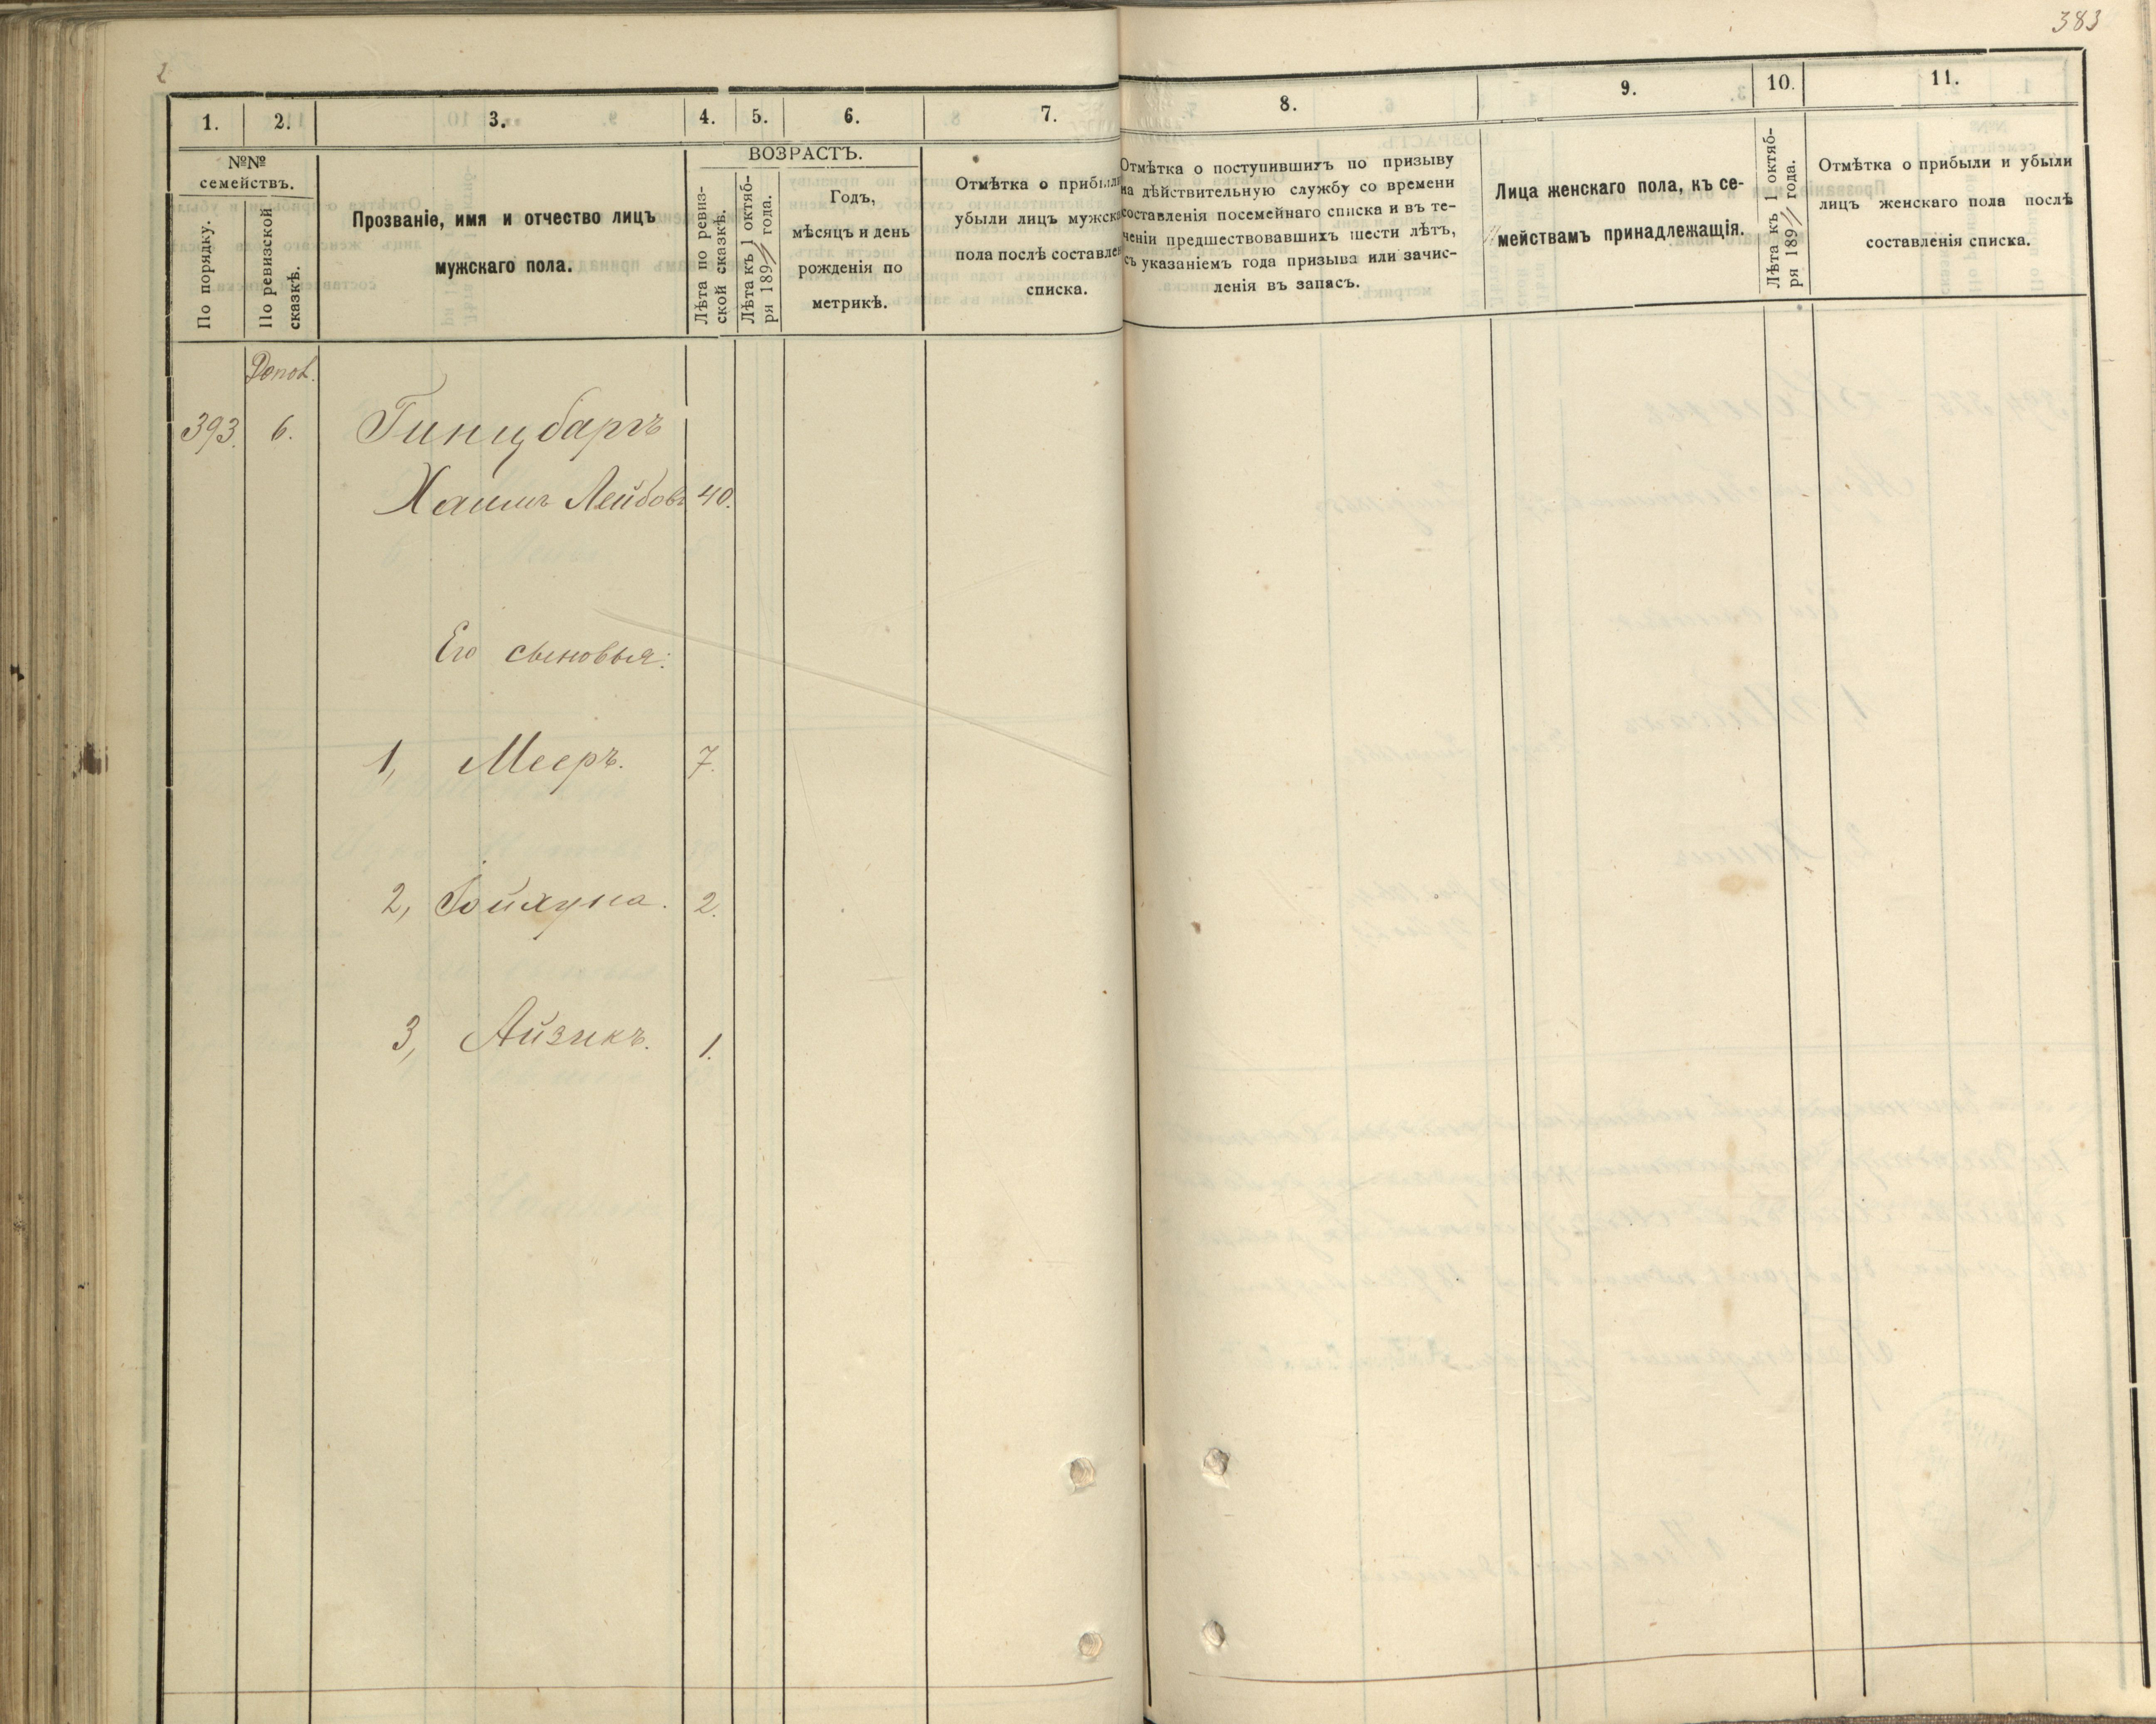 2
383
1.
2.
3.
4.
5.
6.
7.
8.
9.
10.
11.
№№
семействъ.
По порядку.
По ревизской
сказкѣ.
Прозваніе, имя и отчество лицъ
мужскаго пола.
ВОЗРАСТЪ.
Лѣта по ревиз-
ской сказкѣ.
Лѣта къ 1 октяб-
ря 189 года.
Годъ,
мѣсяцъ и день
рожденія по
метрикѣ.
Отмѣтка о прибыли
убыли лицъ мужска
пола послѣ составлен
списка.
Отмѣтка о поступившихъ по призыву
на дѣйствительную службу со времени
составленія посемейнаго списка и въ те-
ченіи предшествовавшихъ шести лѣтъ,
съ указаніемъ года призыва или зачис-
ленія въ запасъ.
Лица женскаго пола, къ се-
мействамъ принадлежащія.
Лѣта къ 1 октяб-
ря 189 года.
Отмѣтка о прибыли и убыли
лицъ женскаго пола послѣ
составленія списка.
Допол.
393. 6. Гинцбаргъ
Хаимъ Лейбовъ 40.
Его сыновья:
1, Мееръ. 7.
2, 2.
3, Айзикъ. 1.